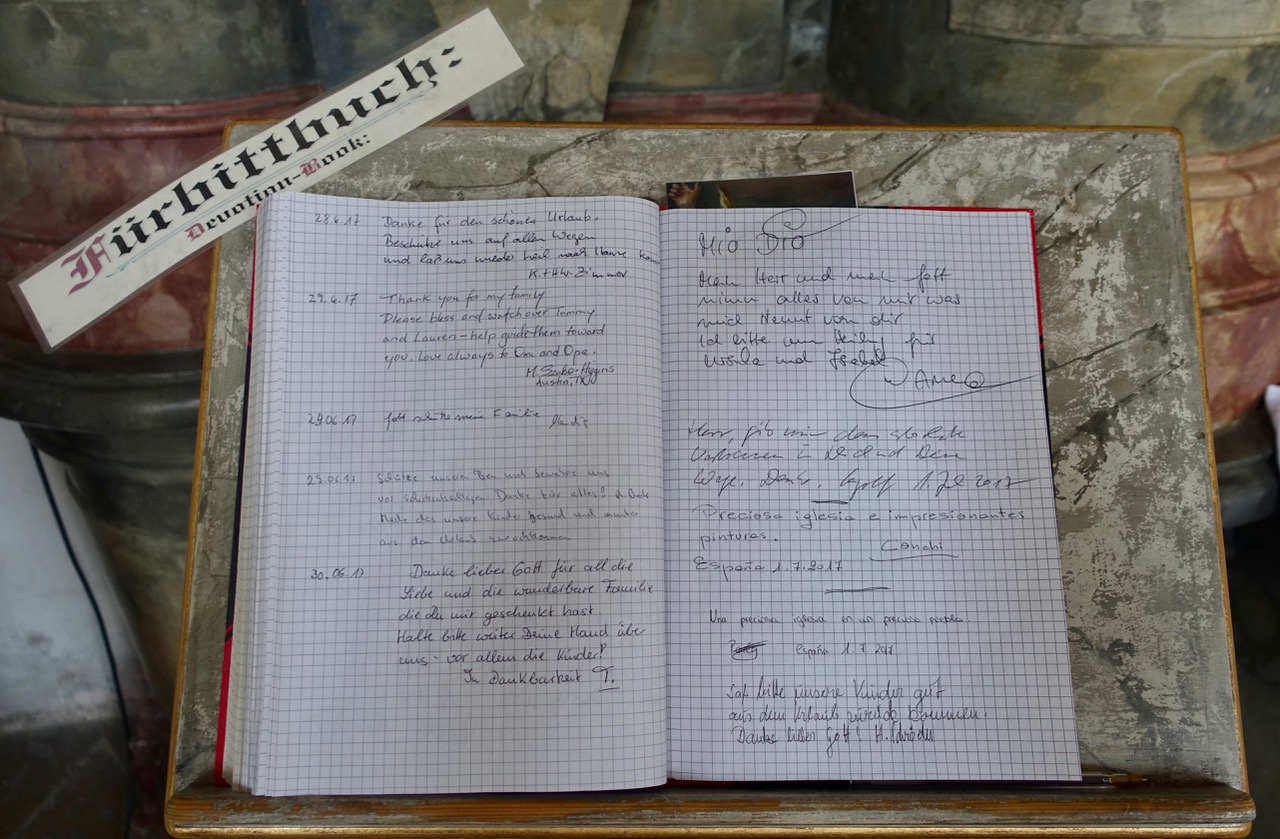 Fürbittbuch:
Devotion-Book:
28.6.17 Danke für den schönen Urlaub.
Beschütze uns auf allen Wegen
und laß uns wieder heil nach Hause
K. + HW. Zimmer
29.6.17 Thank you for my family
Please bless and watch over Tommy
and Lauren - help guide them toward
you. Love always to Omi and Opa.
M. Szabo-Higgins
Austin, TX
29.06.17 Gott schütze meine Familie
29.06.17 Schütze unseren Ben und bewahre uns
vor Danke für alles!
Mache das unsere Kinder gesund und munter
aus dem Urlaub
30.06.17 Danke lieber Gott für all die
Liebe und die wunderbare Familie
die Du mir geschenkt hast.
Halte bitte weiter Deine Hand über
uns - vor allem die Kinder!
In Dankbarkeit T.
Mio Dio
Mein Herr und mein Gott
nimm alles von mir was
mich von dir
Ich bitte um Heilung für
Ursula und Isabel
Herr, gib mir
Vertrauen in Dich und Deine
Wege. Danke. 1. Juli 2017
Preciosa iglesia e impresionantes
pinturas.
Conchi
España 1.7.2017
Una preciosa iglesia en un precioso pueblo.
España 1.7.2017
Laß bitte unsere Kinder gut
aus dem Urlaub zurück kommen.
Danke lieber Gott! H.